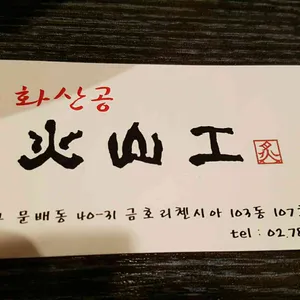 화산공
火山工
문배동 40-31 금호리첸시아 103동 107
tel : 02.78